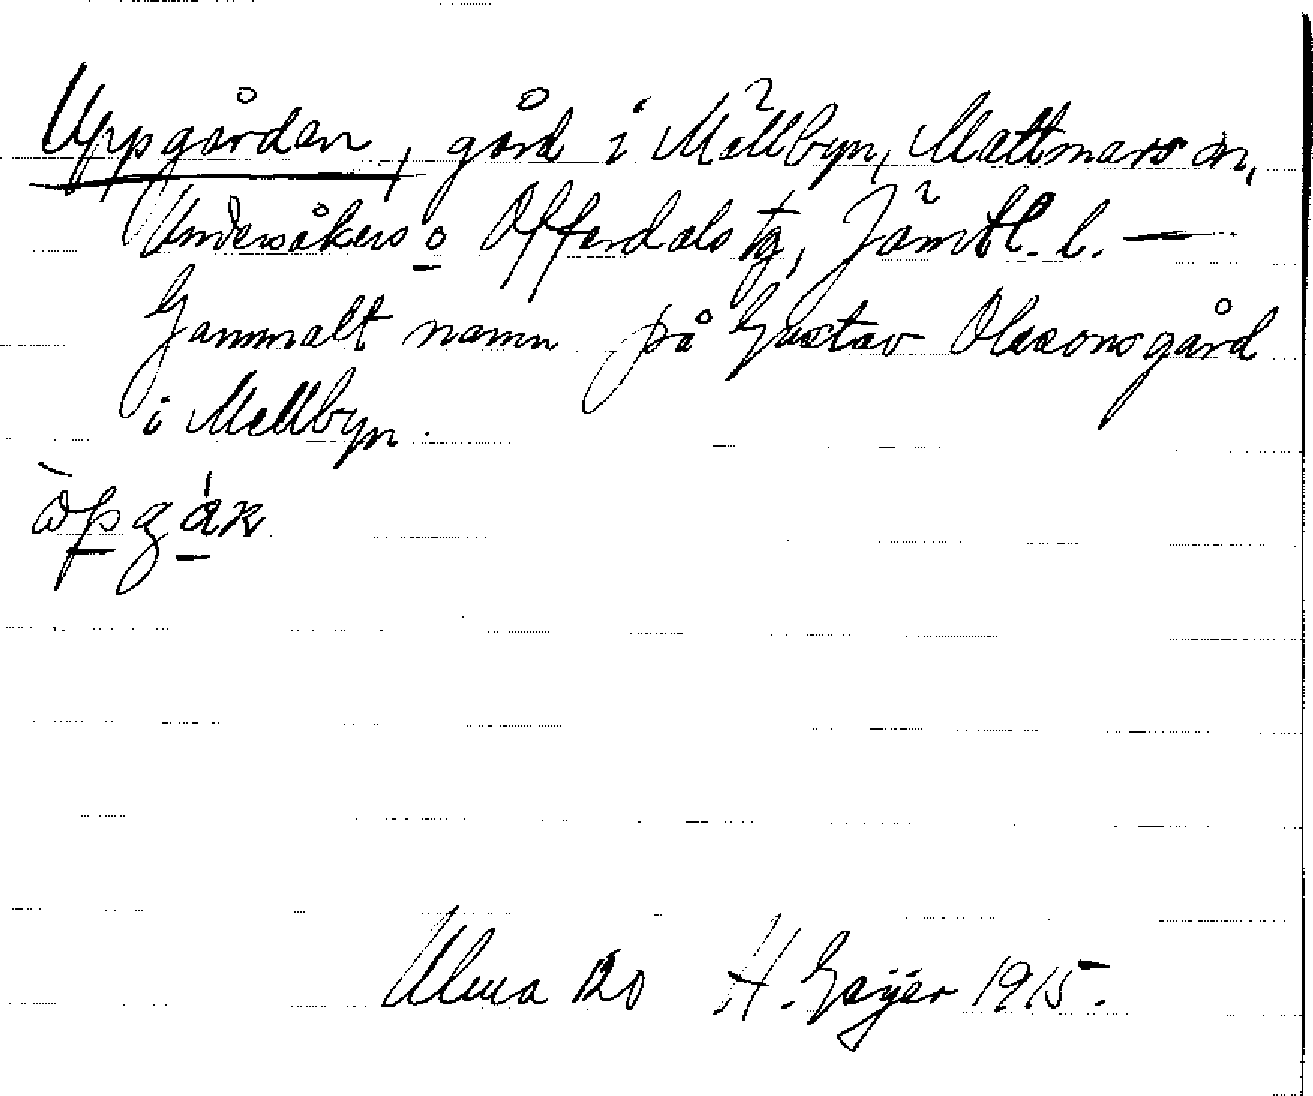 Uppgården, gård i Mällbyn, Mattmars sn,
Undersåkers o Offerdals tg, Jämtl. l. —
Gammalt namn på Gustav Olssonsgård
i Mällbyn.
H. Geijer 1915.